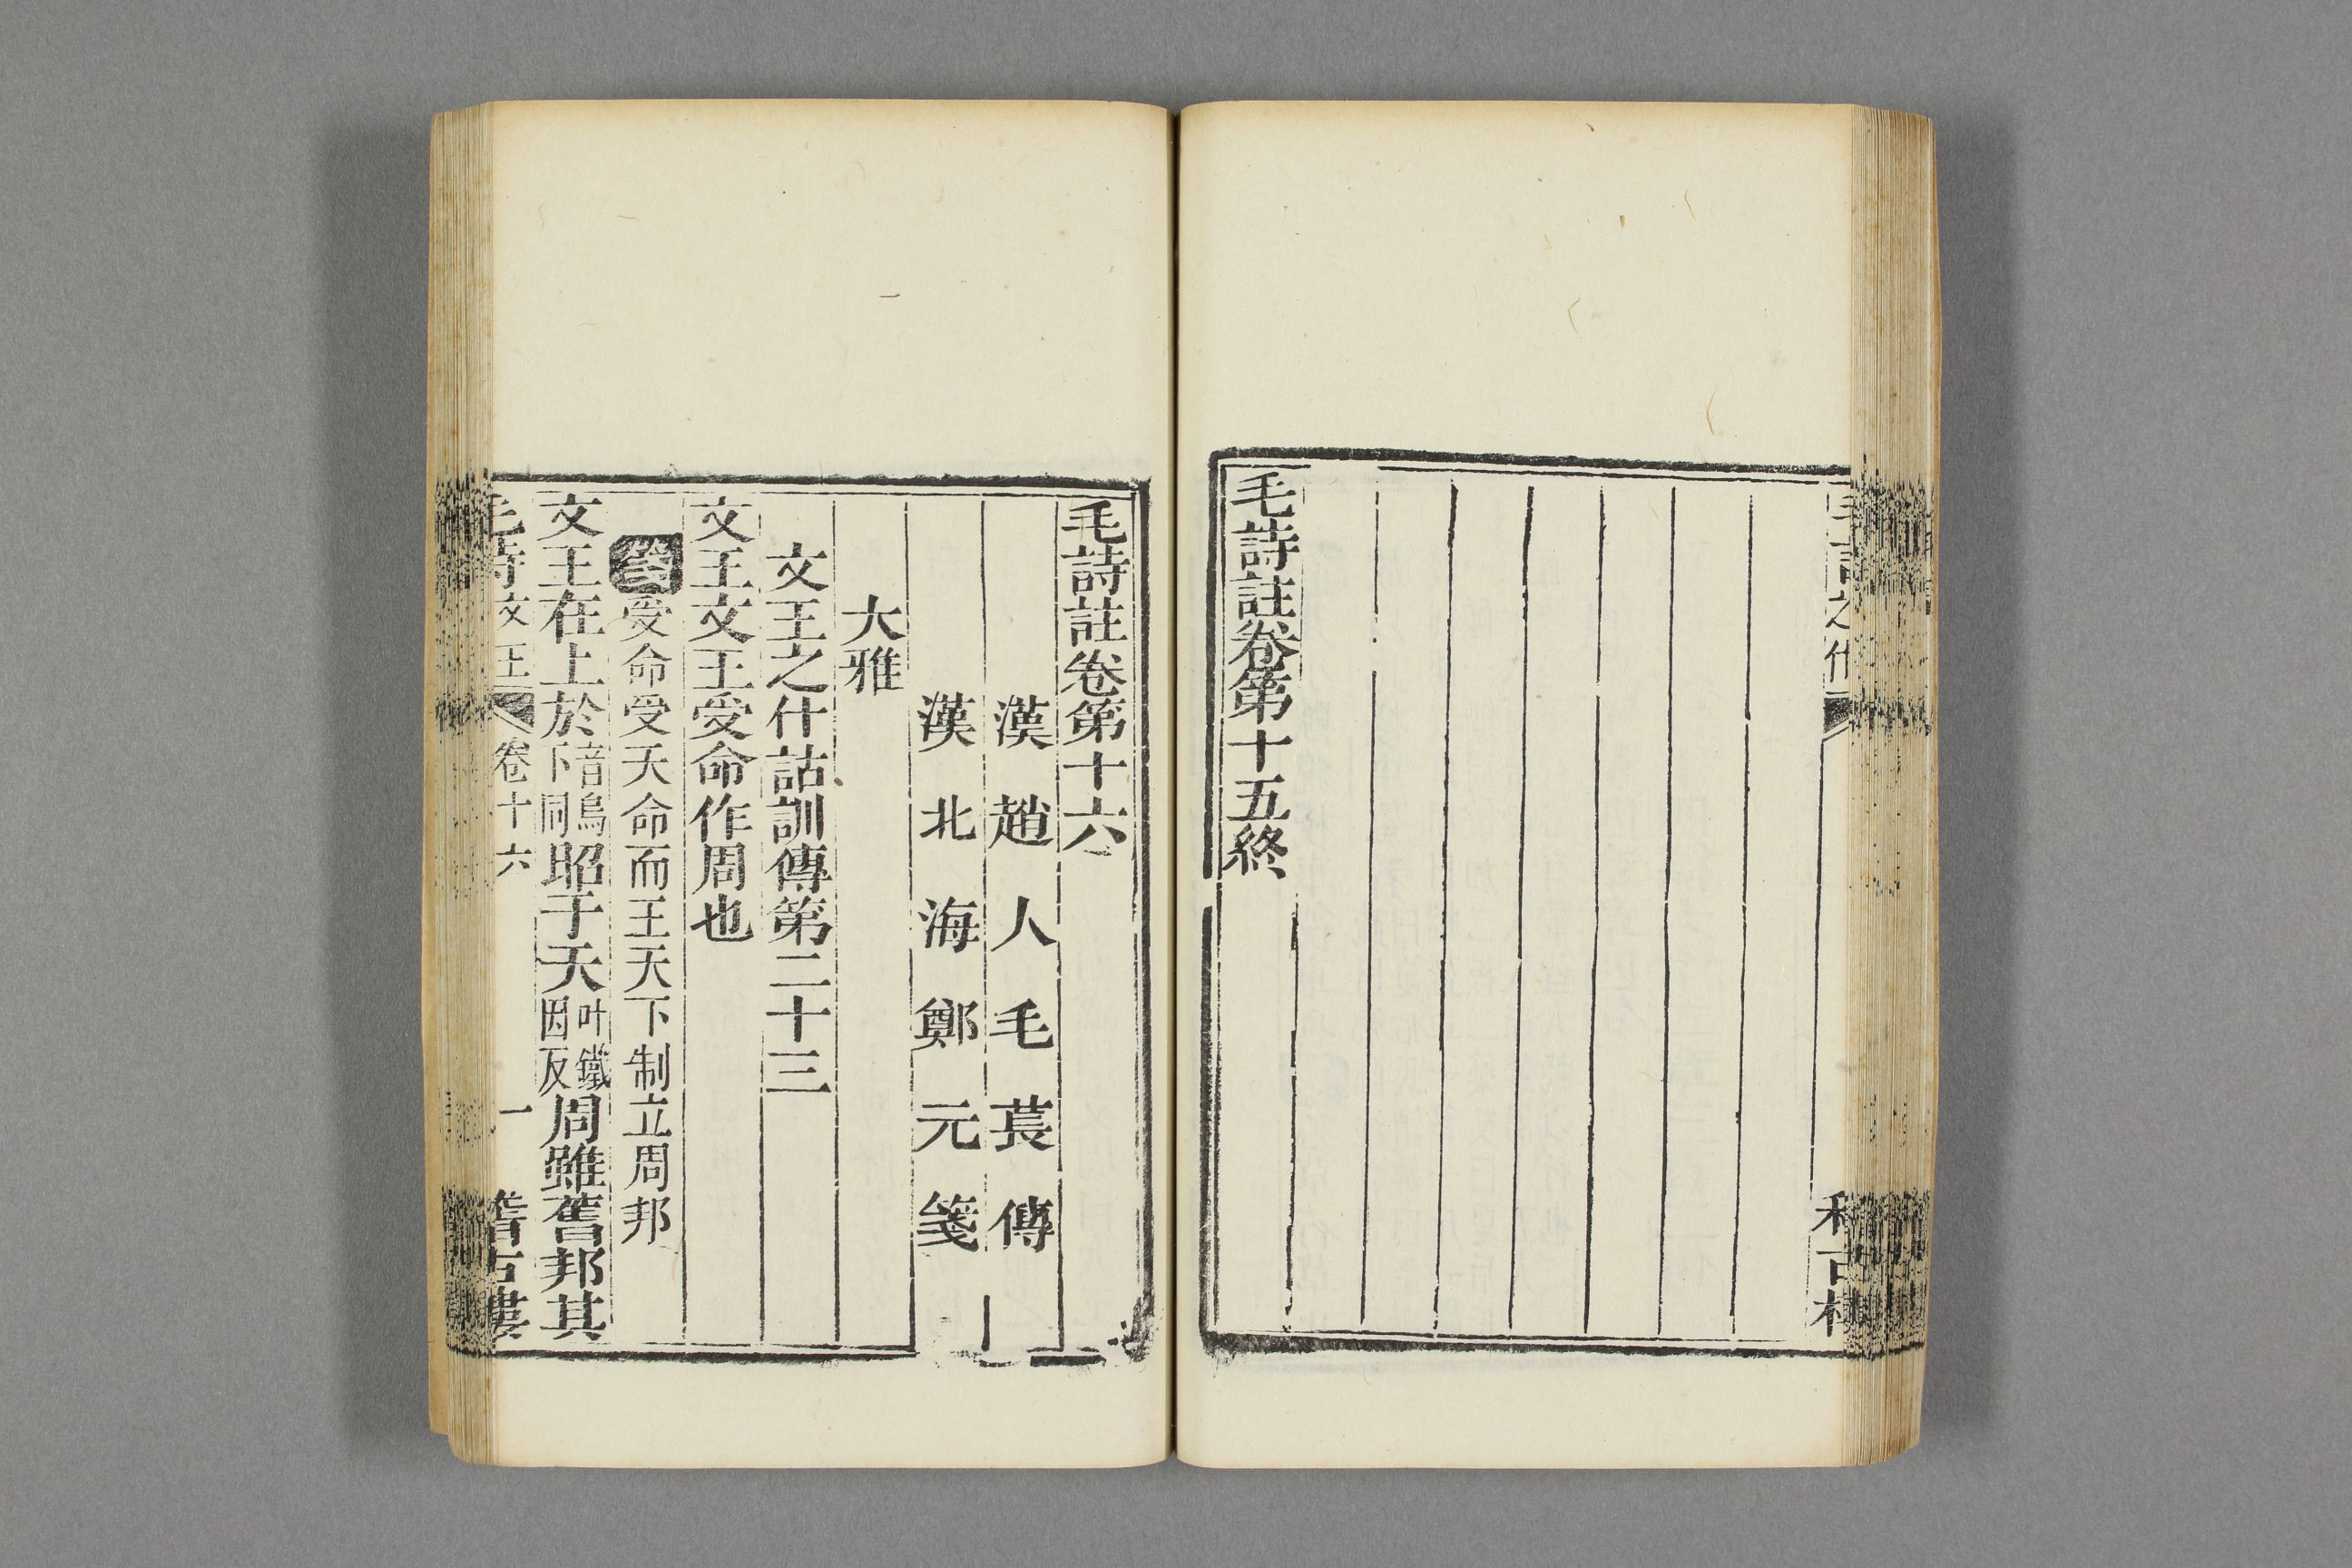 之什
毛詩註卷第十五終
毛詩註卷第十六
漢趙人毛萇傳
漢北海鄭元箋
大雅
文王之什詁訓傳第二十三
文王文王受命作周也
箋受命受天命而王天下制立周邦
文王在上於音烏下同昭于天叶鐵因反周雖舊邦其
毛詩文王 卷十六 一 稽古樓